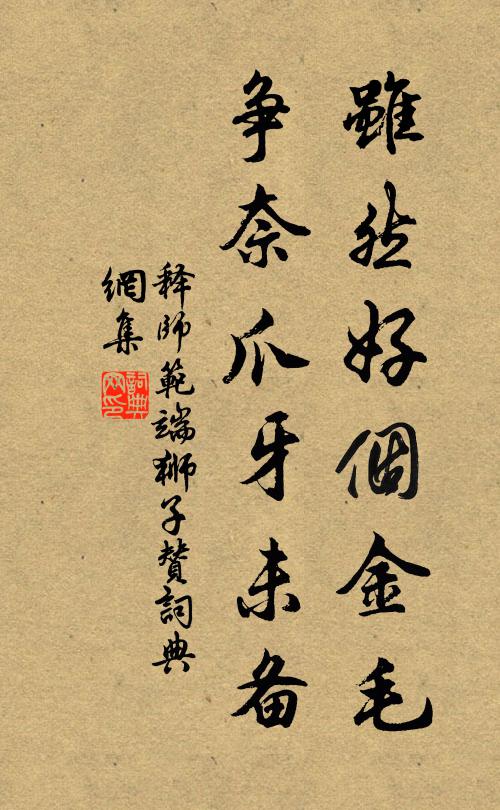 雖然好個金毛
争奈爪牙未备
释師範端獅子贊詞典
網集
詞典
网印